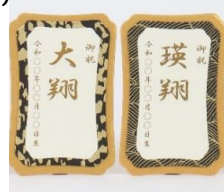 御祝
大翔
令和〇〇年〇〇月〇〇日生
御祝
瑛翔
令和〇〇年〇〇月〇〇日生